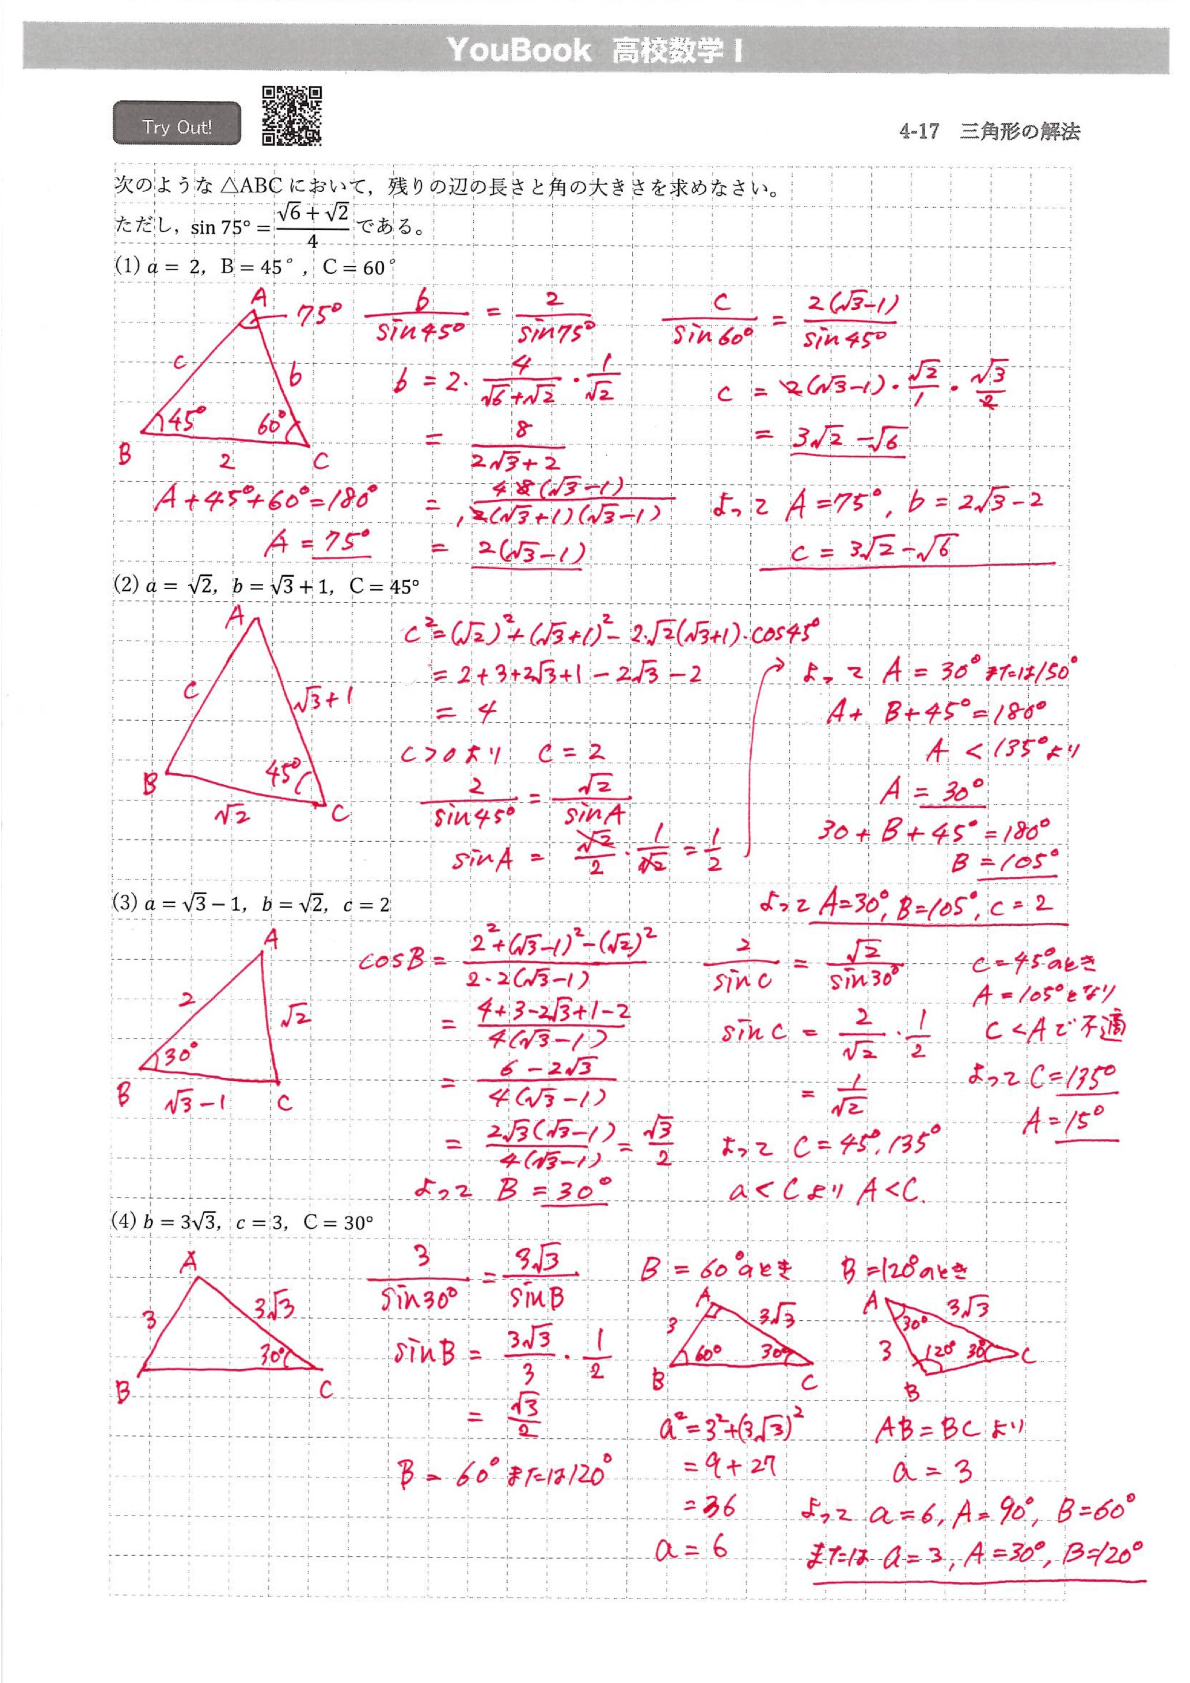 YouBook 高校数学 I
Try Out!
4-17 三角形の解法
次のような △ABC において，残りの辺の長さと角の大きさを求めなさい。
ただし，sin 75° = (√6 + √2)/4 である。
(1) a = 2, B = 45°, C = 60°
A 75°
c b
45° 60°
B 2 C
A+45°+60°=180°
A = 75°
b/sin45° = 2/sin75°
b = 2・4/(√6+√2)・1/√2
= 8/(2√3+2)
= 4 8(√3-1)/1 2(√3+1)(√3-1)
= 2(√3-1)
c/sin60° = 2(√3-1)/sin45°
c = 2(√3-1)・√2/1・√3/2
= 3√2-√6
よって A=75°, b=2√3-2
c = 3√2-√6
(2) a = √2, b = √3 + 1, C = 45°
A
c √3+1
B 45°
√2 C
c²=(√2)²+(√3+1)²-2・√2(√3+1)・cos45°
= 2+3+2√3+1-2√3-2
= 4
c>0より c=2
2/sin45° = √2/sinA
sinA = √2/2・1/√2 = 1/2
よって A = 30°または150°
A+B+45°=180°
A < 135°より
A = 30°
30+B+45°=180°
B = 105°
よって A=30°, B=105°, c=2
(3) a = √3 − 1, b = √2, c = 2
A
2 √2
30°
B √3-1 C
cosB = (2²+(√3-1)²-(√2)²)/(2・2(√3-1))
= (4+3-2√3+1-2)/(4(√3-1))
= (6-2√3)/(4(√3-1))
= 2√3(√3-1)/(4(√3-1)) = √3/2
よって B = 30°
2/sinC = √2/sin30°
sinC = 2/√2・1/2
= 1/√2
よって C=45°, 135°
a<cより A<C.
C=45°のとき
A=105°となり
C<Aで不適
よって C=135°
A=15°
(4) b = 3√3, c = 3, C = 30°
A
3 3√3
30°
B C
3/sin30° = 3√3/sinB
sinB = 3√3/3・1/2
= √3/2
B = 60°または120°
B = 60°のとき
A
3 3√3
60° 30°
B C
a²=3²+(3√3)²
= 9+27
= 36
a = 6
B=120°のとき
A 3√3
30°
3 120° 30° C
B
AB=BCより
a = 3
よって a=6, A=90°, B=60°
または a=3, A=30°, B=120°